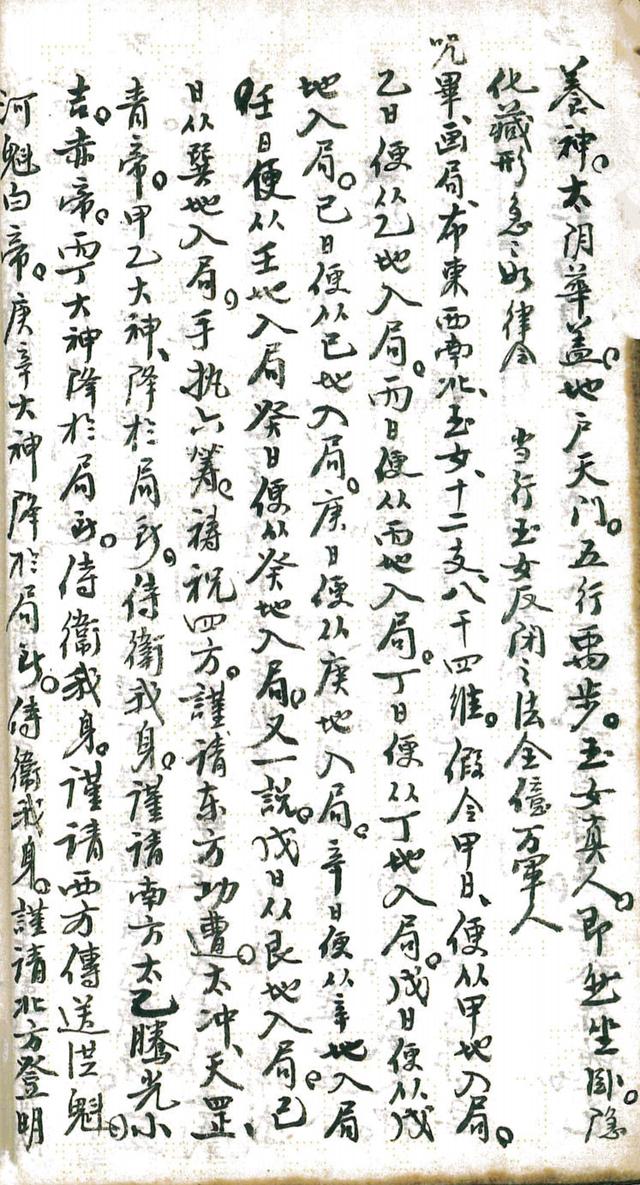 養神。太阴華盖。地户天门。五行禹步。玉女真人。即無坐卧。隐
化藏形急〻如律令　当行玉女反闭之法全億万軍人
咒畢画局、布東西南北、玉女、十二支、八干四维。假令甲日、便从甲地入局。
乙日便从乙地入局。丙日便从丙地入局。丁日便从丁地入局。戊日便从戊
地入局。己日便从己地入局。庚日便从庚地入局。辛日便从辛地入局
壬日便从壬地入局癸日便从癸地入局。又一説。戊日从艮地入局。己
日从巽地入局。手执六筹。禱祝四方。謹请东方功曹。太冲、天罡、
青帝。甲乙大神、降於局所，侍衛我身。謹請南方太乙騰光小
吉。赤帝。丙丁大神降於局所。侍衛我身。謹請西方傳送洪魁
河魁白帝。庚辛大神降於局所。侍衛我身。謹請北方登明